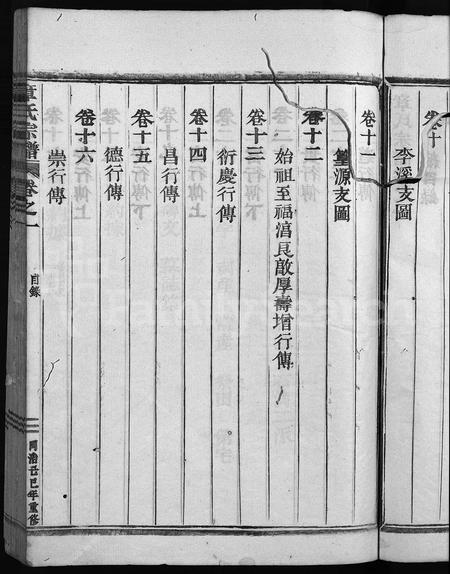 卷十
李溪支圖
卷十一
篁源支圖
卷十二
始祖至福滈良敵厚壽增行傳
卷十三
衍慶行傳
卷十四
昌行傳
卷十五
德行傳
卷十六
崇行傳
章氏宗譜 卷之一
目錄
同治己巳年重修